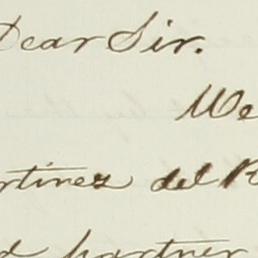 Dear Sir.
We
rtinez del R
d partner